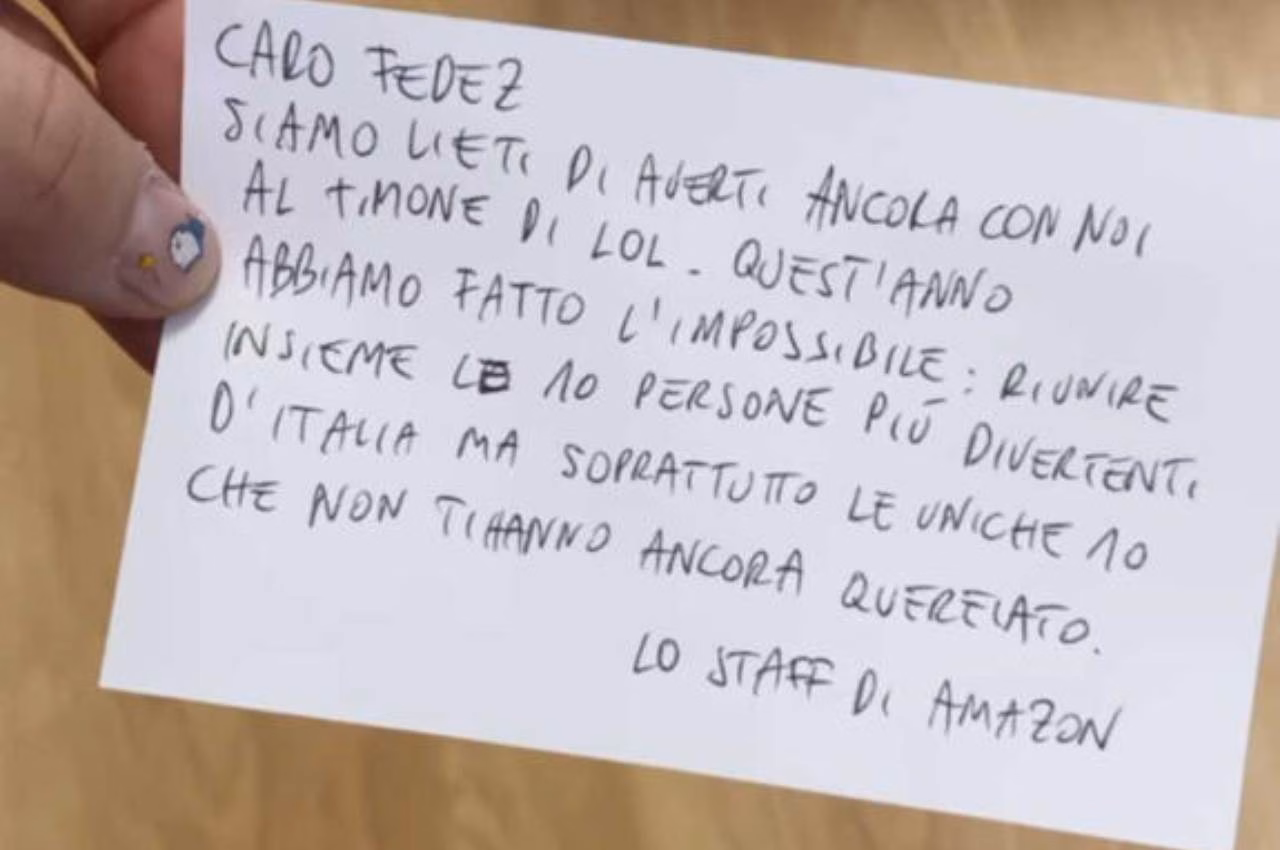 CARO FEDEZ
SIAMO LIETI DI AVERTI ANCORA CON NOI
AL TIMONE DI LOL. QUEST'ANNO
ABBIAMO FATTO L'IMPOSSIBILE: RIUNIRE
INSIEME LE 10 PERSONE PIÙ DIVERTENTI
D'ITALIA MA SOPRATTUTTO LE UNICHE 10
CHE NON TI HANNO ANCORA QUERELATO.
LO STAFF DI AMAZON